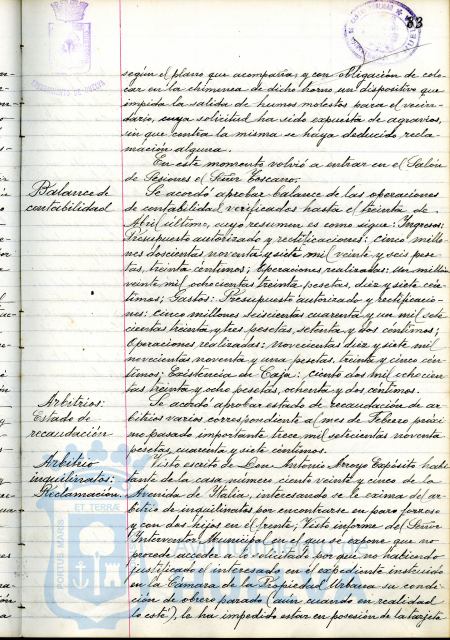 83
según el plano que acompaña, y con obligación de colo-
car en la chimenea de dicho horno un dispositivo que
impida la salida de humos molestos para el vecin-
dario, cuya solicitud ha sido expuesta de agravios,
sin que contra la misma se haya deducido recla-
mación alguna.
En este momento volvió a entrar en el Salón
de Sesiones el Señor Toscano.
Balance de
contabilidad
Se acordó aprobar balance de las operaciones
de contabilidad verificadas hasta el treinta de
Abril último, cuyo resumen es como sigue: Ingresos:
Presupuesto autorizado y rectificaciones: cinco millo-
nes doscientas noventa y siete mil veinte y seis pese-
tas, treinta céntimos; Operaciones realizadas: un millón
veinte mil ochocientas treinta pesetas, diez y siete cén-
timos; Gastos: Presupuesto autorizado y rectificacio-
nes: cinco millones seiscientas cuarenta y un mil sete-
cientas treinta y tres pesetas, setenta y dos céntimos;
Operaciones realizadas: novecientas diez y siete mil
novecientas noventa y una pesetas, treinta y cinco cén-
timos; Existencia de Caja: ciento dos mil ochocien-
tas treinta y ocho pesetas, ochenta y dos céntimos.
Arbitrios:
Estado de
recaudación
Se acordó aprobar estado de recaudación de ar-
bitrios varios correspondiente al mes de Febrero próxi-
mo pasado importante trece mil setecientas noventa
pesetas, cuarenta y siete céntimos.
Arbitrio
inquilinatos:
Reclamación.
Visto escrito de Don Antonio Arroyo Expósito habi-
tante de la casa número ciento veinte y cinco de la
Avenida de Italia, interesando se le exima del ar-
bitrio de inquilinatos por encontrarse en paro forzoso
y con dos hijos en el frente; Visto informe del Señor
Interventor Municipal en el que se expone que no
procede acceder a lo solicitado por que no habiendo
justificado el interesado en el expediente instruido
en la Cámara de la Propiedad Urbana su condi-
ción de obrero parado (aún cuando en realidad
lo esté), le ha impedido estar en posesión de la tarjeta
PORTUS MARIS
ET TERRÆ
Ayuntamiento de